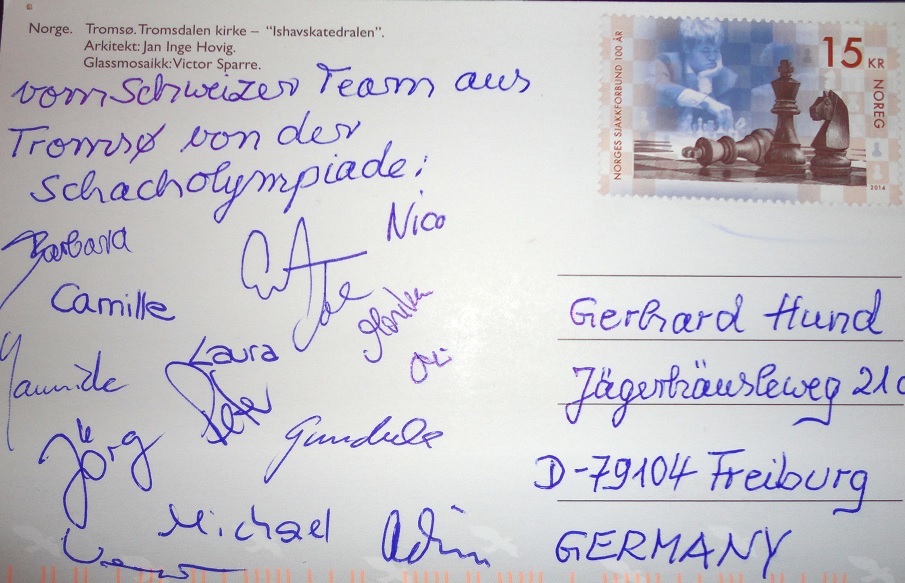 Norge. Tromsø. Tromsdalen kirke – "Ishavskatedralen".
Arkitekt: Jan Inge Hovig.
Glassmosaikk: Victor Sparre.
vom Schweizer Team aus
Tromsø von der
Schacholympiade:
Barbara
Nico
Camille
Monika
Laura
Oli
Yannick
Peter
Jörg
Gundula
Michael
NORGES SJAKKFORBUND 100 ÅR
15 KR
NOREG
2014
Gerhard Hund
Jägerhäusleweg 21c
D-79104 Freiburg
GERMANY